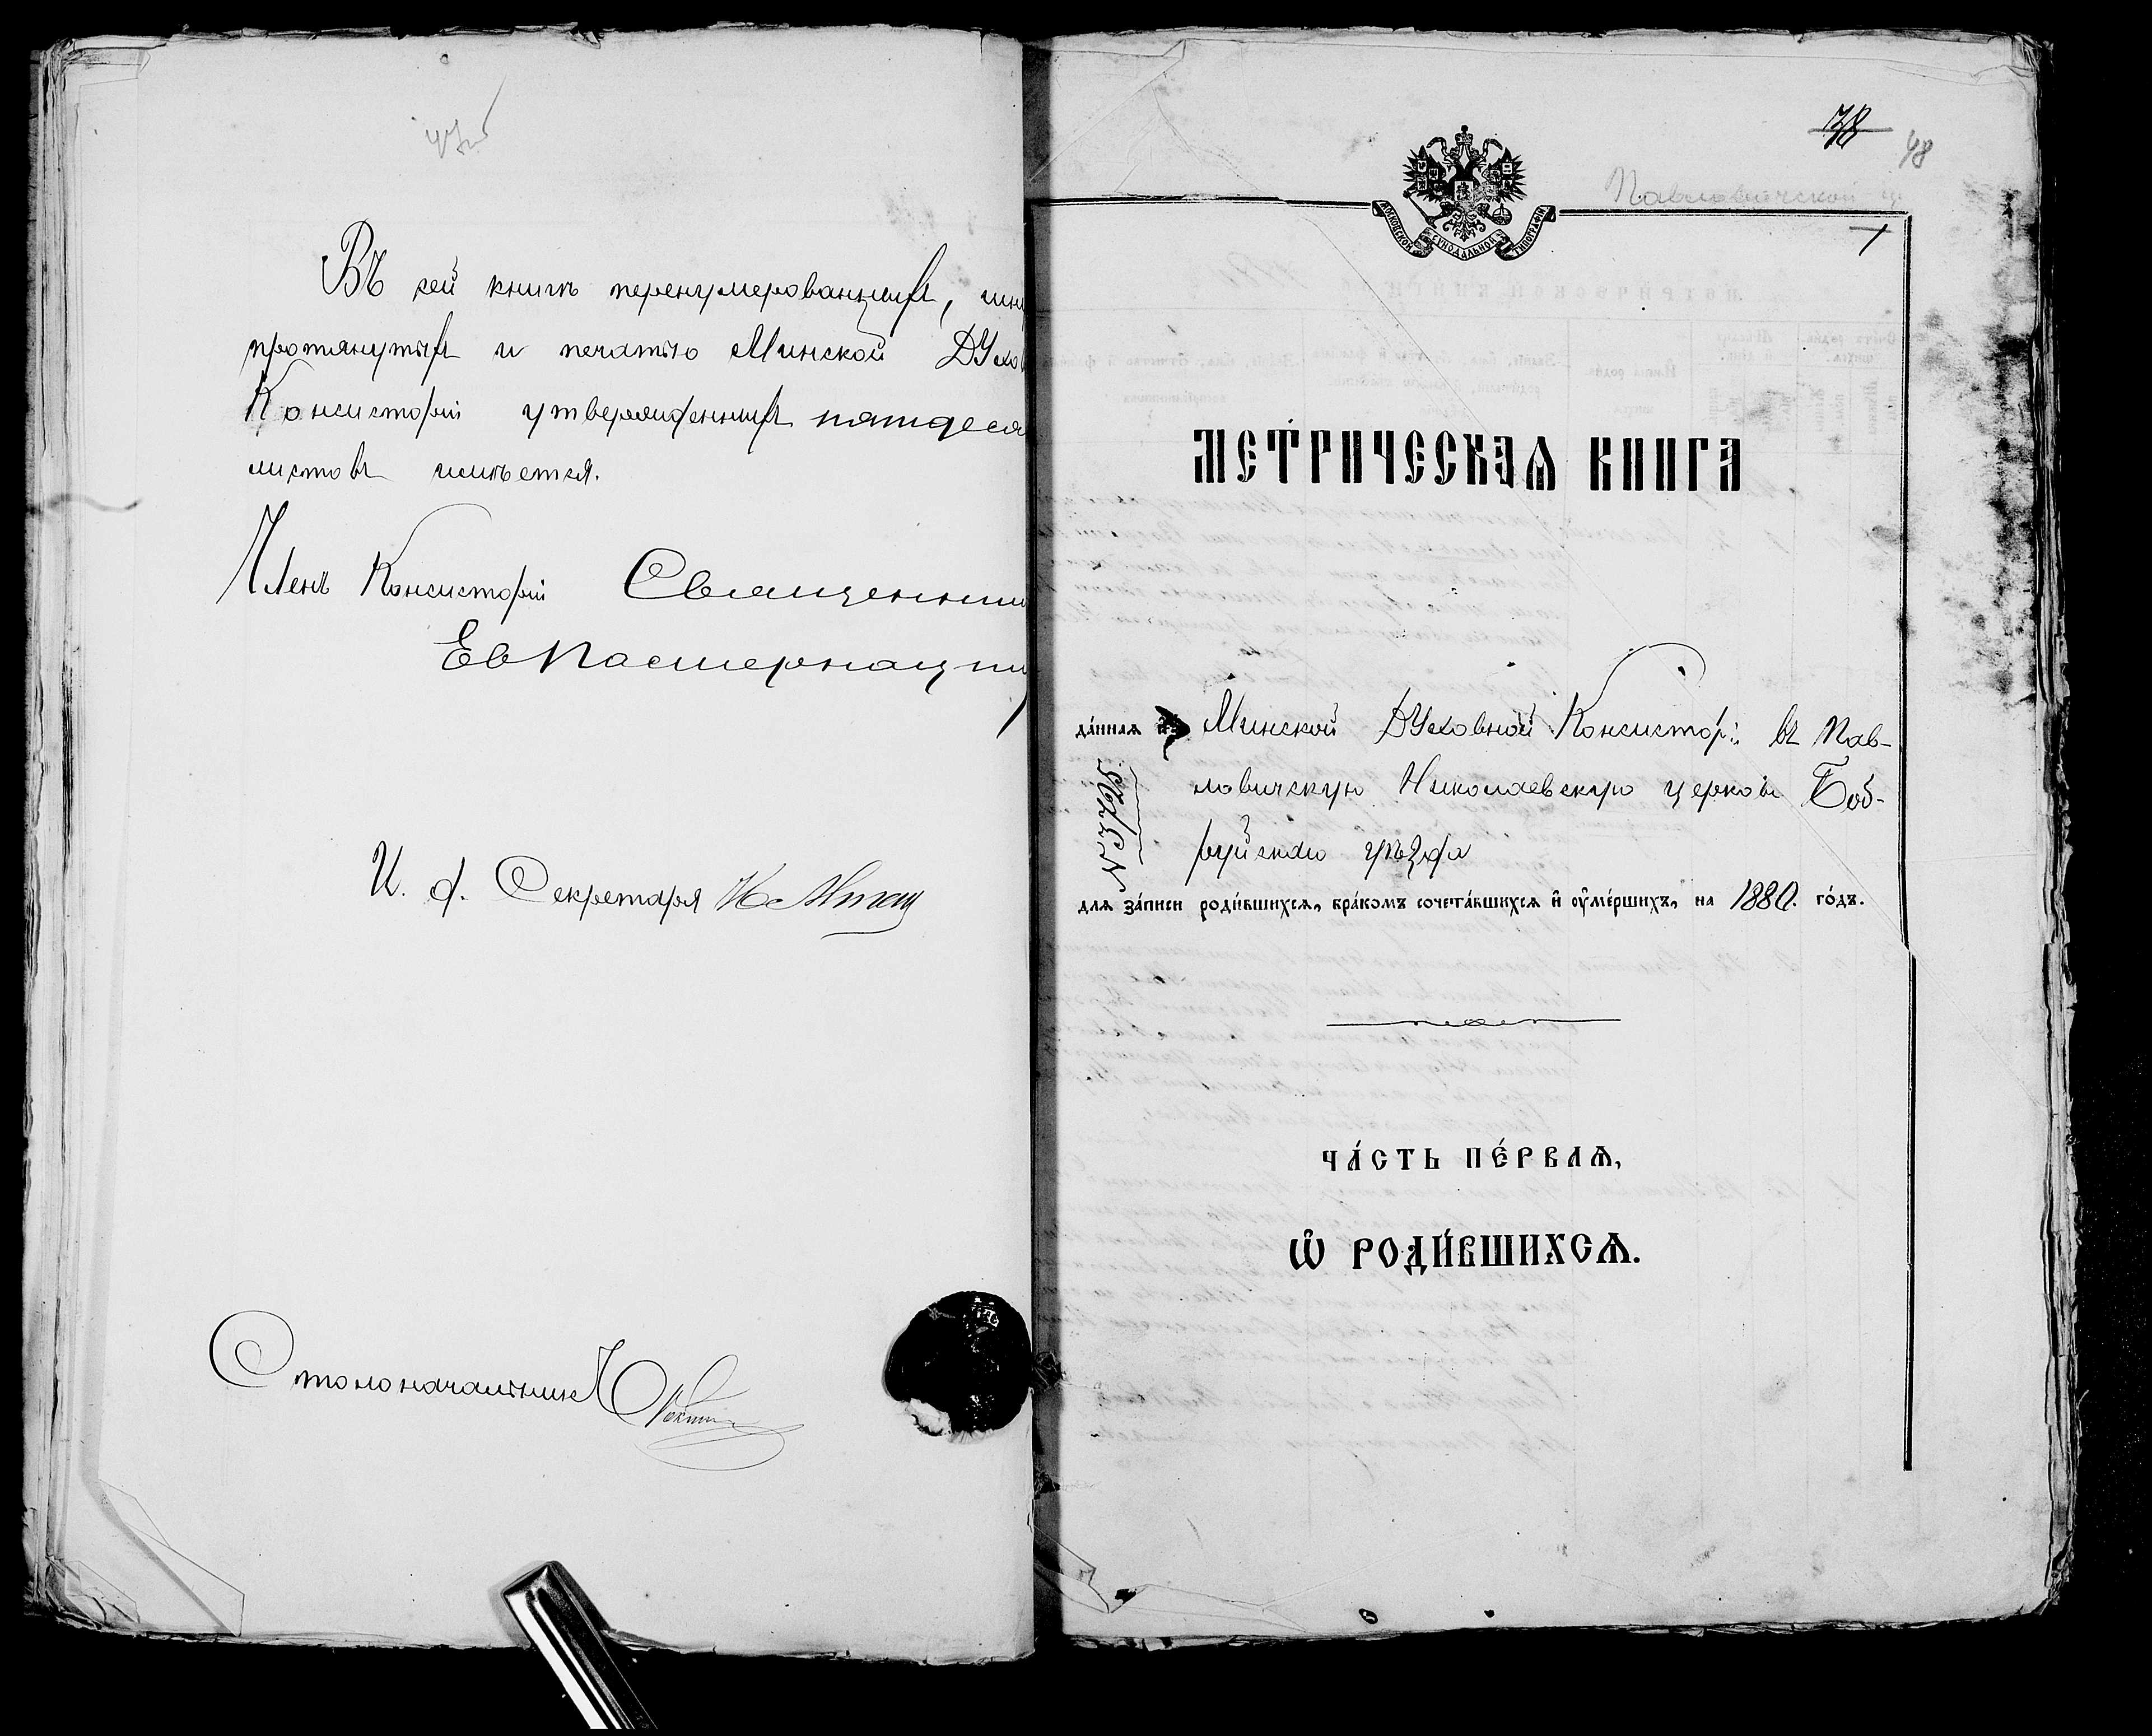 Въ сей книгѣ перенумерованныхъ, шну
протянутыхъ и печатью Минской Духов
Консисторіи утвержденныхъ пятидеся
листовъ имѣется.
Членъ Консисторіи Священни
И. д. Секретаря
Столоначальникъ
38 48
Павловичской ц
МОСКОВСКОЙ СѴНОДАЛЬНОЙ ТИПОГРАФІИ
1
МЕТРИЧЕСКАѦ КНИГА
да́ннаѧ и҆зъ Минской Духовной Консисторіи въ Пав-
ловичскую Николаевскую церковь Боб-
руйскаго уѣзда
№ 3728
для за́писи роди́вшихсѧ, бра́комъ сочета́вшихсѧ и҆ ᲂу҆ме́ршихъ, на 1880. го́дъ.
ЧА́СТЬ ПЕ́РВАѦ,
Ѽ РОДИ́ВШИХСѦ.